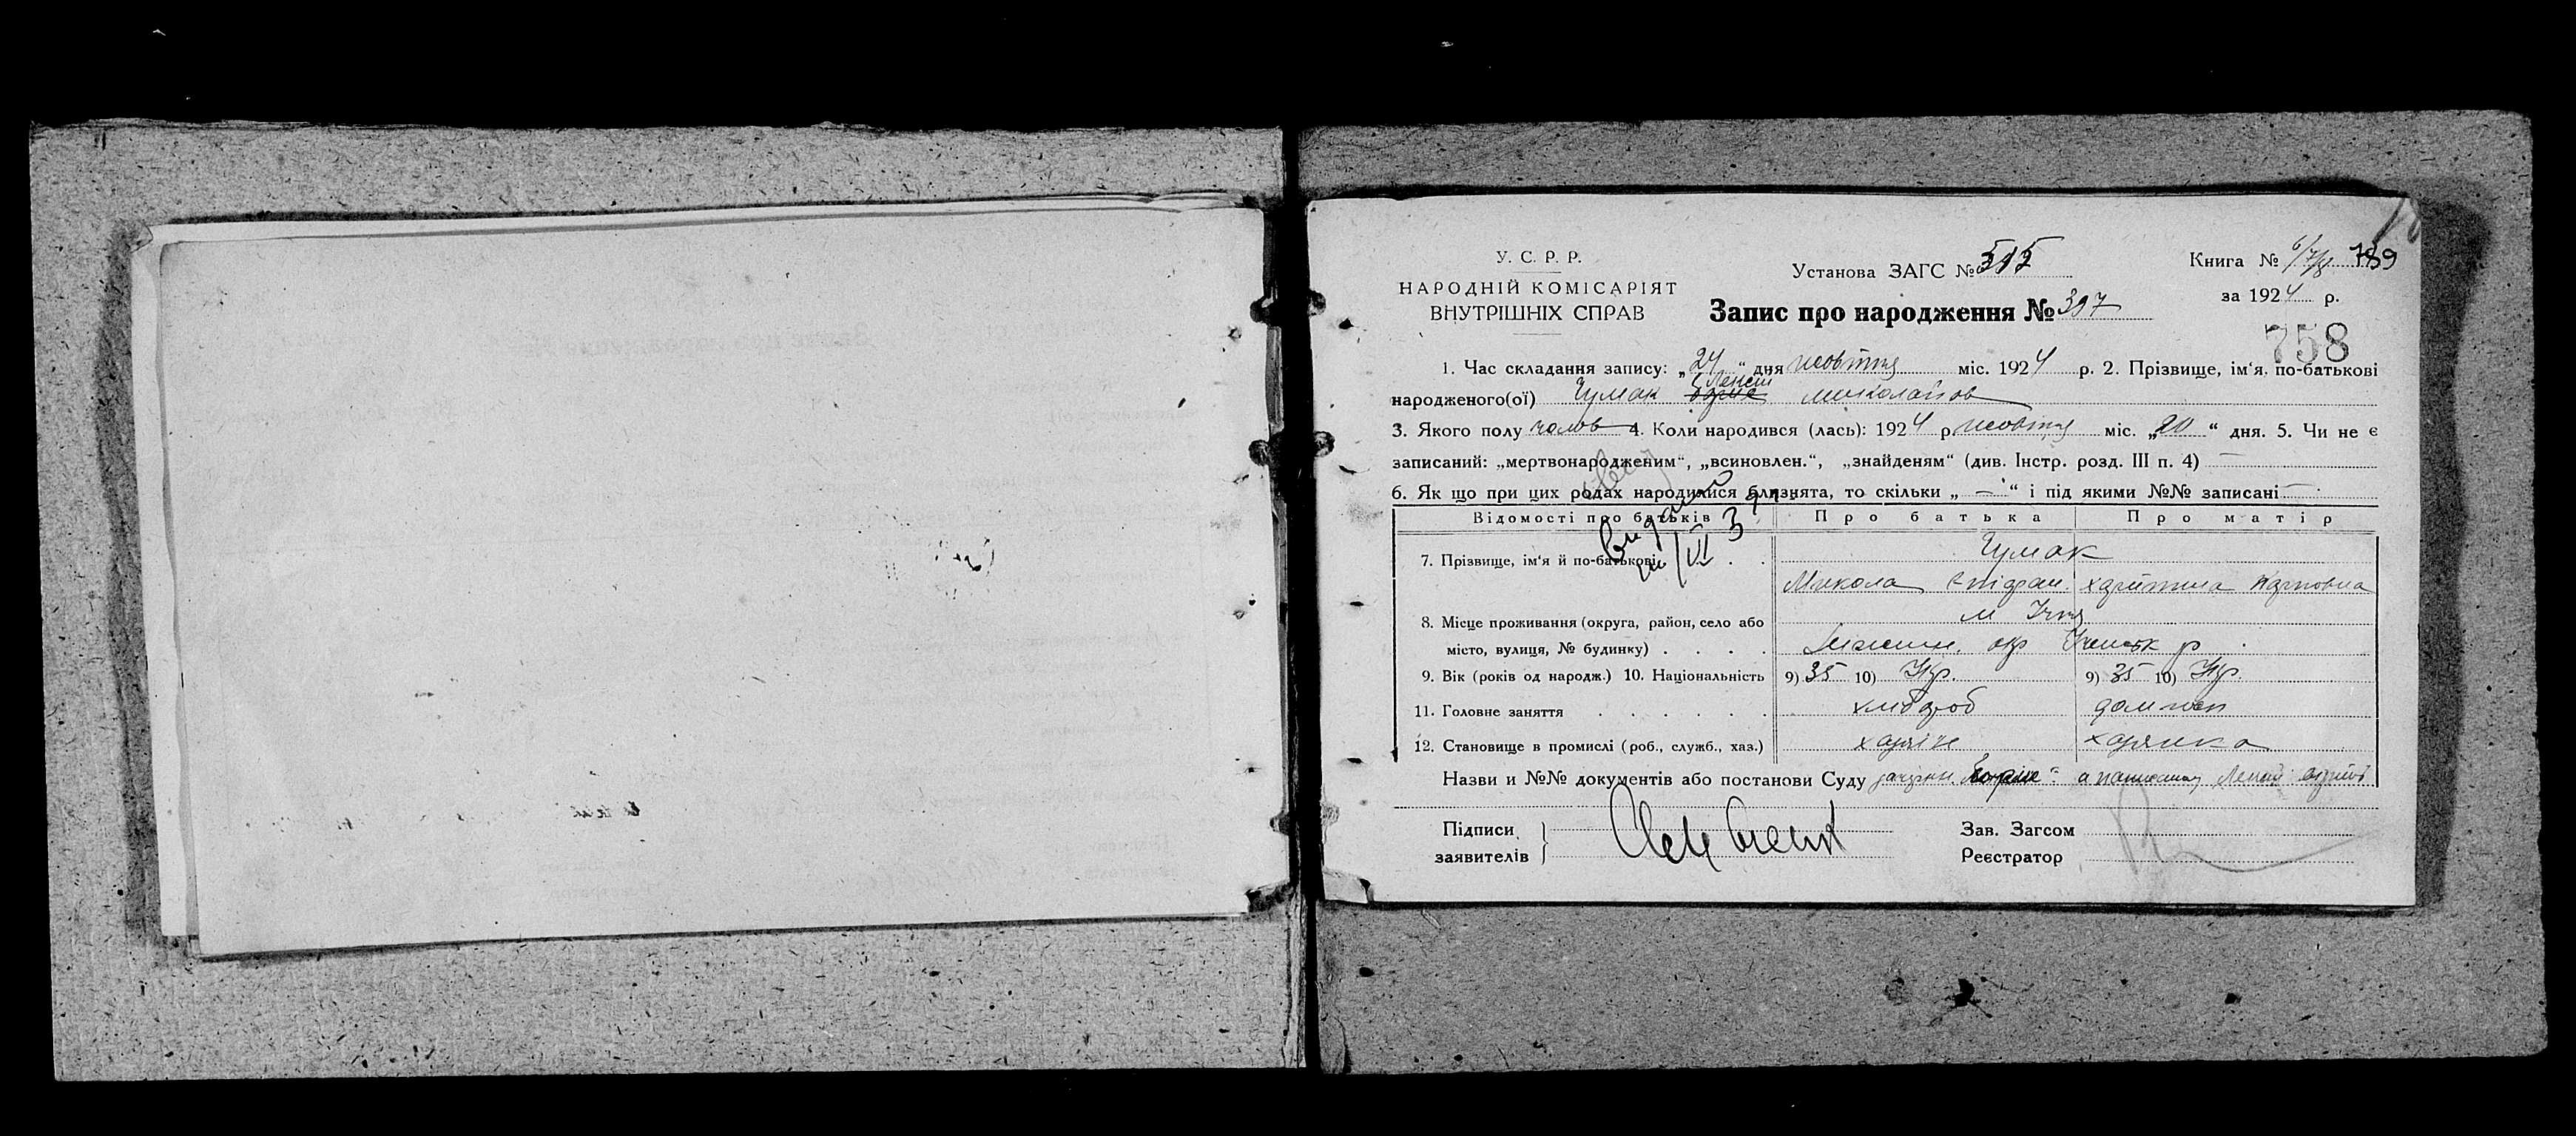 У. С. Р. Р.
НАРОДНІЙ КОМІСАРІЯТ
ВНУТРІШНІХ СПРАВ
Установа ЗАГС № 515
Запис про народження № 397
Книга № 6/7/8 789
за 1924 р.
758
1. Час складання запису: „24“ дня жовтня міс. 1924 р. 2. Прізвище, ім'я, по-батькові
Ленін
народженого(ої) Чумак Борис Миколайов
3. Якого полу чолов 4. Коли народився (лась): 1924 р. жовтня міс. „20“ дня. 5. Чи не є
записаний: „мертвонародженим“, „всиновлен.“, „знайденям“ (див. Інстр. розд. III п. 4) —
6. Як що при цих родах народилися близнята, то скільки „—“ і під якими №№ записані —
Відомості про батьків Про батька Про матір
7. Прізвище, ім'я й по-батькові Чумак
Микола Харитина
видано
VI 3
8. Місце проживання (округа, район, село або м Ічня
місто, вулиця, № будинку) Ніжин. окр Іченськ р
9. Вік (років од народж.) 10. Національність 9) 35 10) Укр. 9) 35 10) Укр.
11. Головне заняття хлібороб
12. Становище в промислі (роб., служб., хаз.) хазяїн хазяйка
Назви и №№ документів або постанови Суду
Підписи
заявителів
Зав. Загсом
Реєстратор